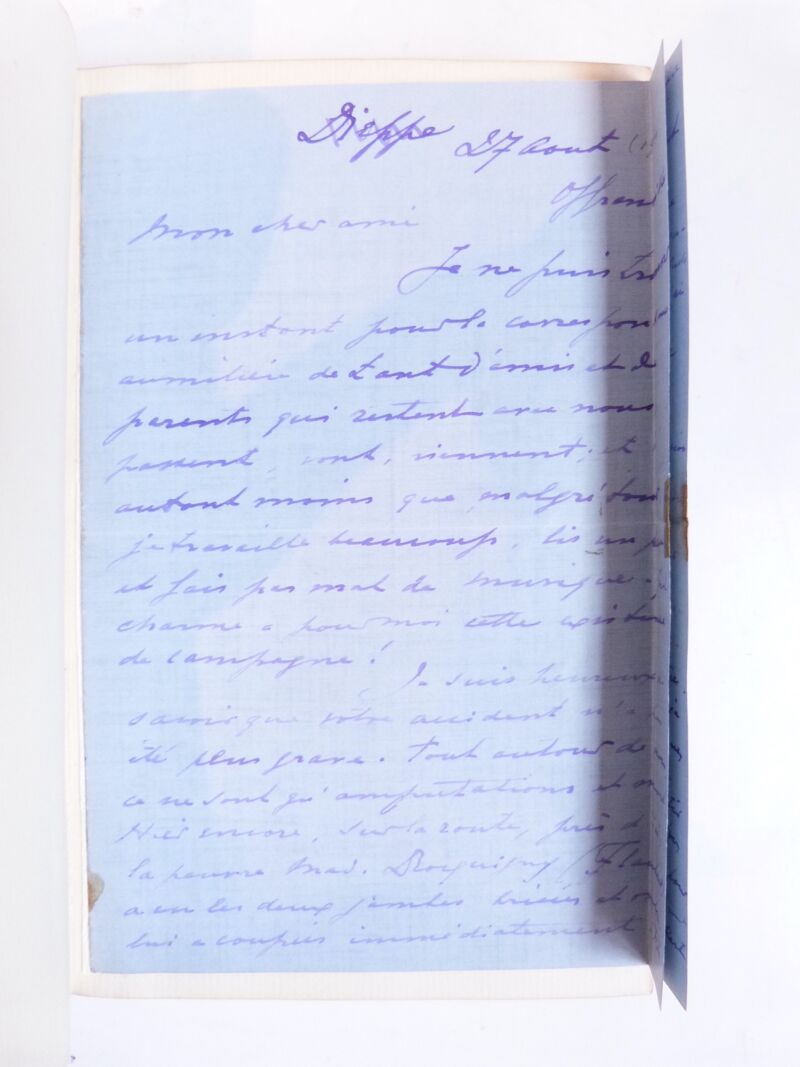 Dieppe 27 Aout
Offran
Mon cher ami
Je ne puis
un instant pour la correspon
au milieu de tant d'amis et de
parents qui restent avec nous
passent, vont, viennent; et
autant moins que, malgré tou
je travaille beaucoup, lis un
et fais pas mal de musique.
charme a pour moi cette existen
de campagne!
Je suis heureux
savoir que votre accident n'a
été plus grave. Tout autour de
ce ne sont qu'amputations et
Hier encore, sur la route, près d
la pauvre Mad.
a eu les deux jambes brisées et
lui a coupées immédiatement